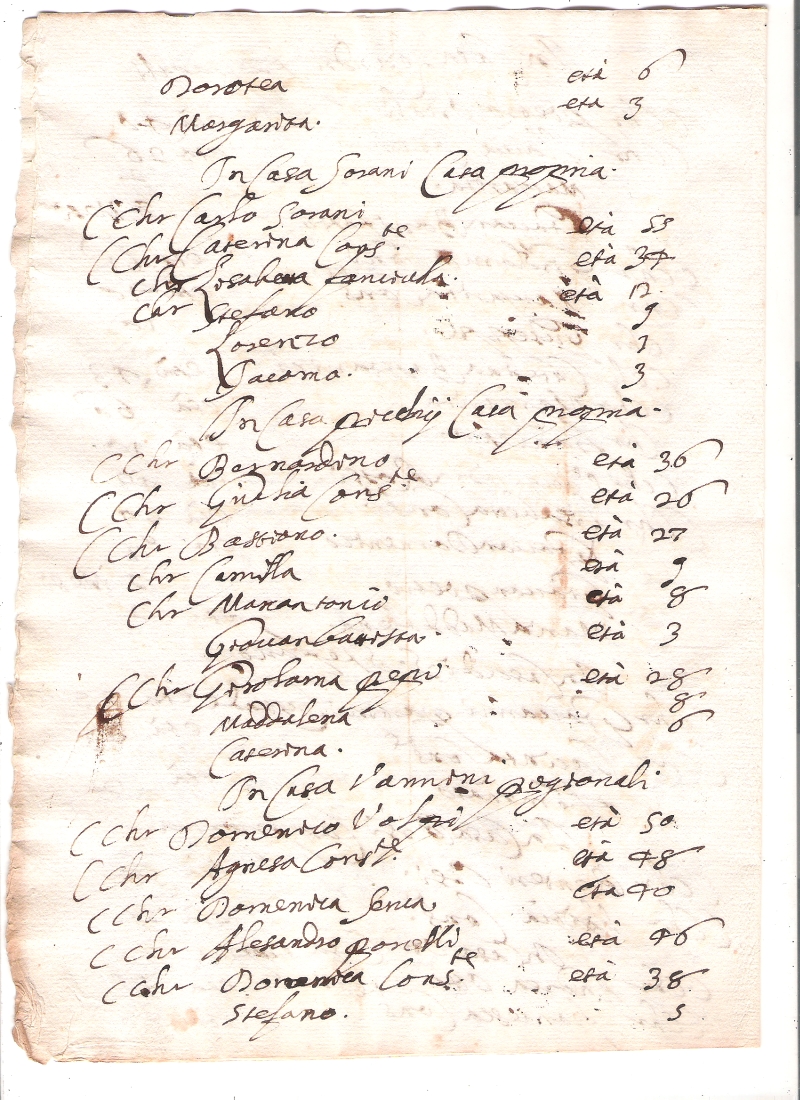 Dorotea età 6
Margarita. età 3
In Casa Sorani Casa propria.
C Chr Carlo Sorani età 55
C Chr Caterina Cons.te età 34
Chr Lisabetta fanciulla. età 12
Chr Stefano 9
Lorenzo 7
Jacomo. 3
In Casa picchij Casa propria.
C Chr Bernardino età 36
C Chr Giulia Cons.te età 26
C Chr Bastiano. età 27
Chr Camilla età 9
Chr Marcantonio età 8
Giovanbatista. età 3
C Chr Girolama pepi età 28
Maddalena 8
Caterina. 6
In Casa Vannini pigionali
C Chr Domenico Volpi età 50
C Chr Agnesa Cons.te età 48
C Chr Domenica serva età 40
C Chr Alesandro porcelli età 46
C Chr Domenica Cons.te età 38
Stefano. 5